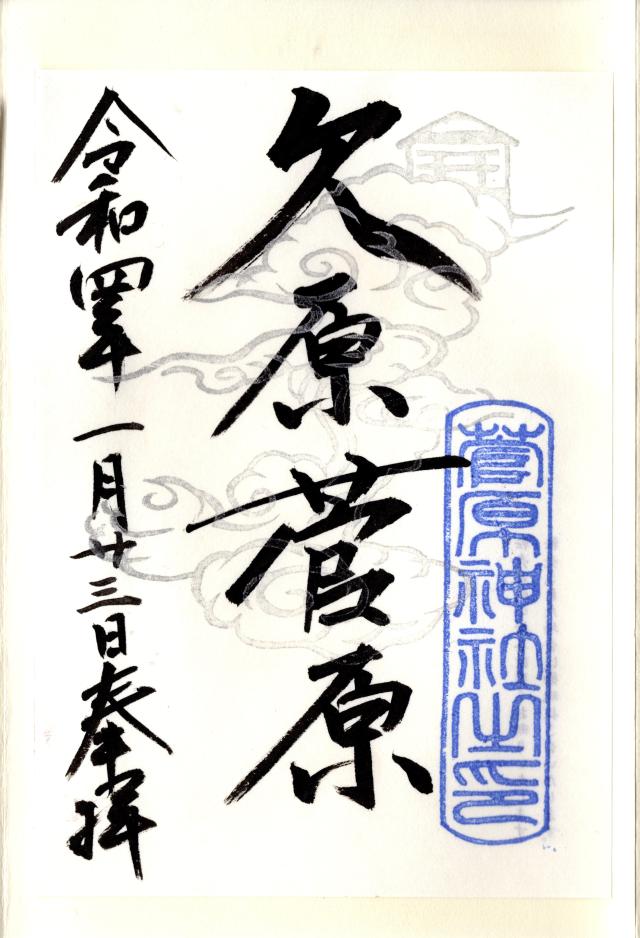 菅原神社之印
久原菅原
令和四年一月廿三日奉拝